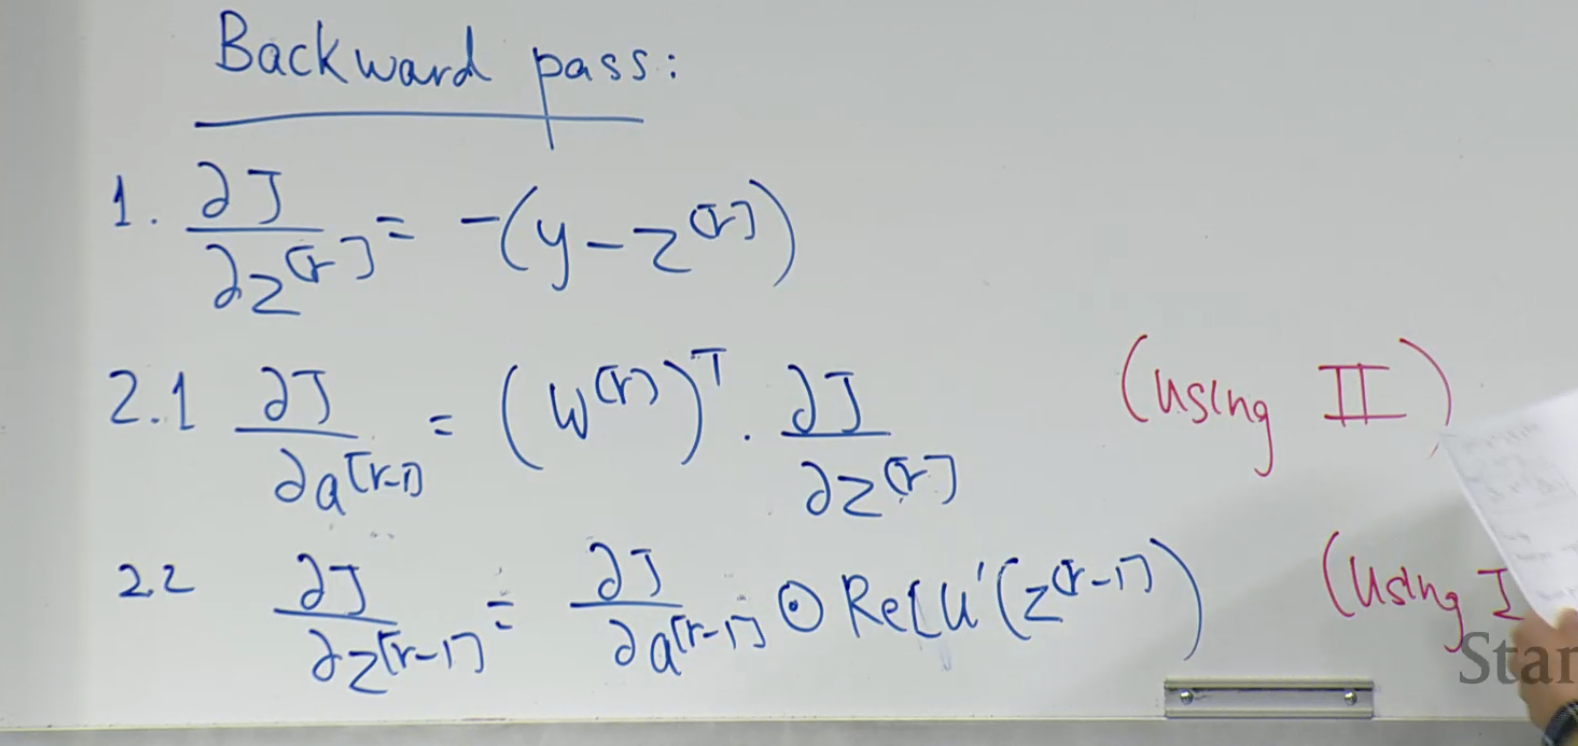 Backward pass:
1. ∂J/∂z^[r] = -(y - z^[r])
2.1 ∂J/∂a^[r-1] = (W^[r])^T · ∂J/∂z^[r] (using II)
2.2 ∂J/∂z^[r-1] = ∂J/∂a^[r-1] ⊙ ReLU'(z^[r-1]) (using I
Stan